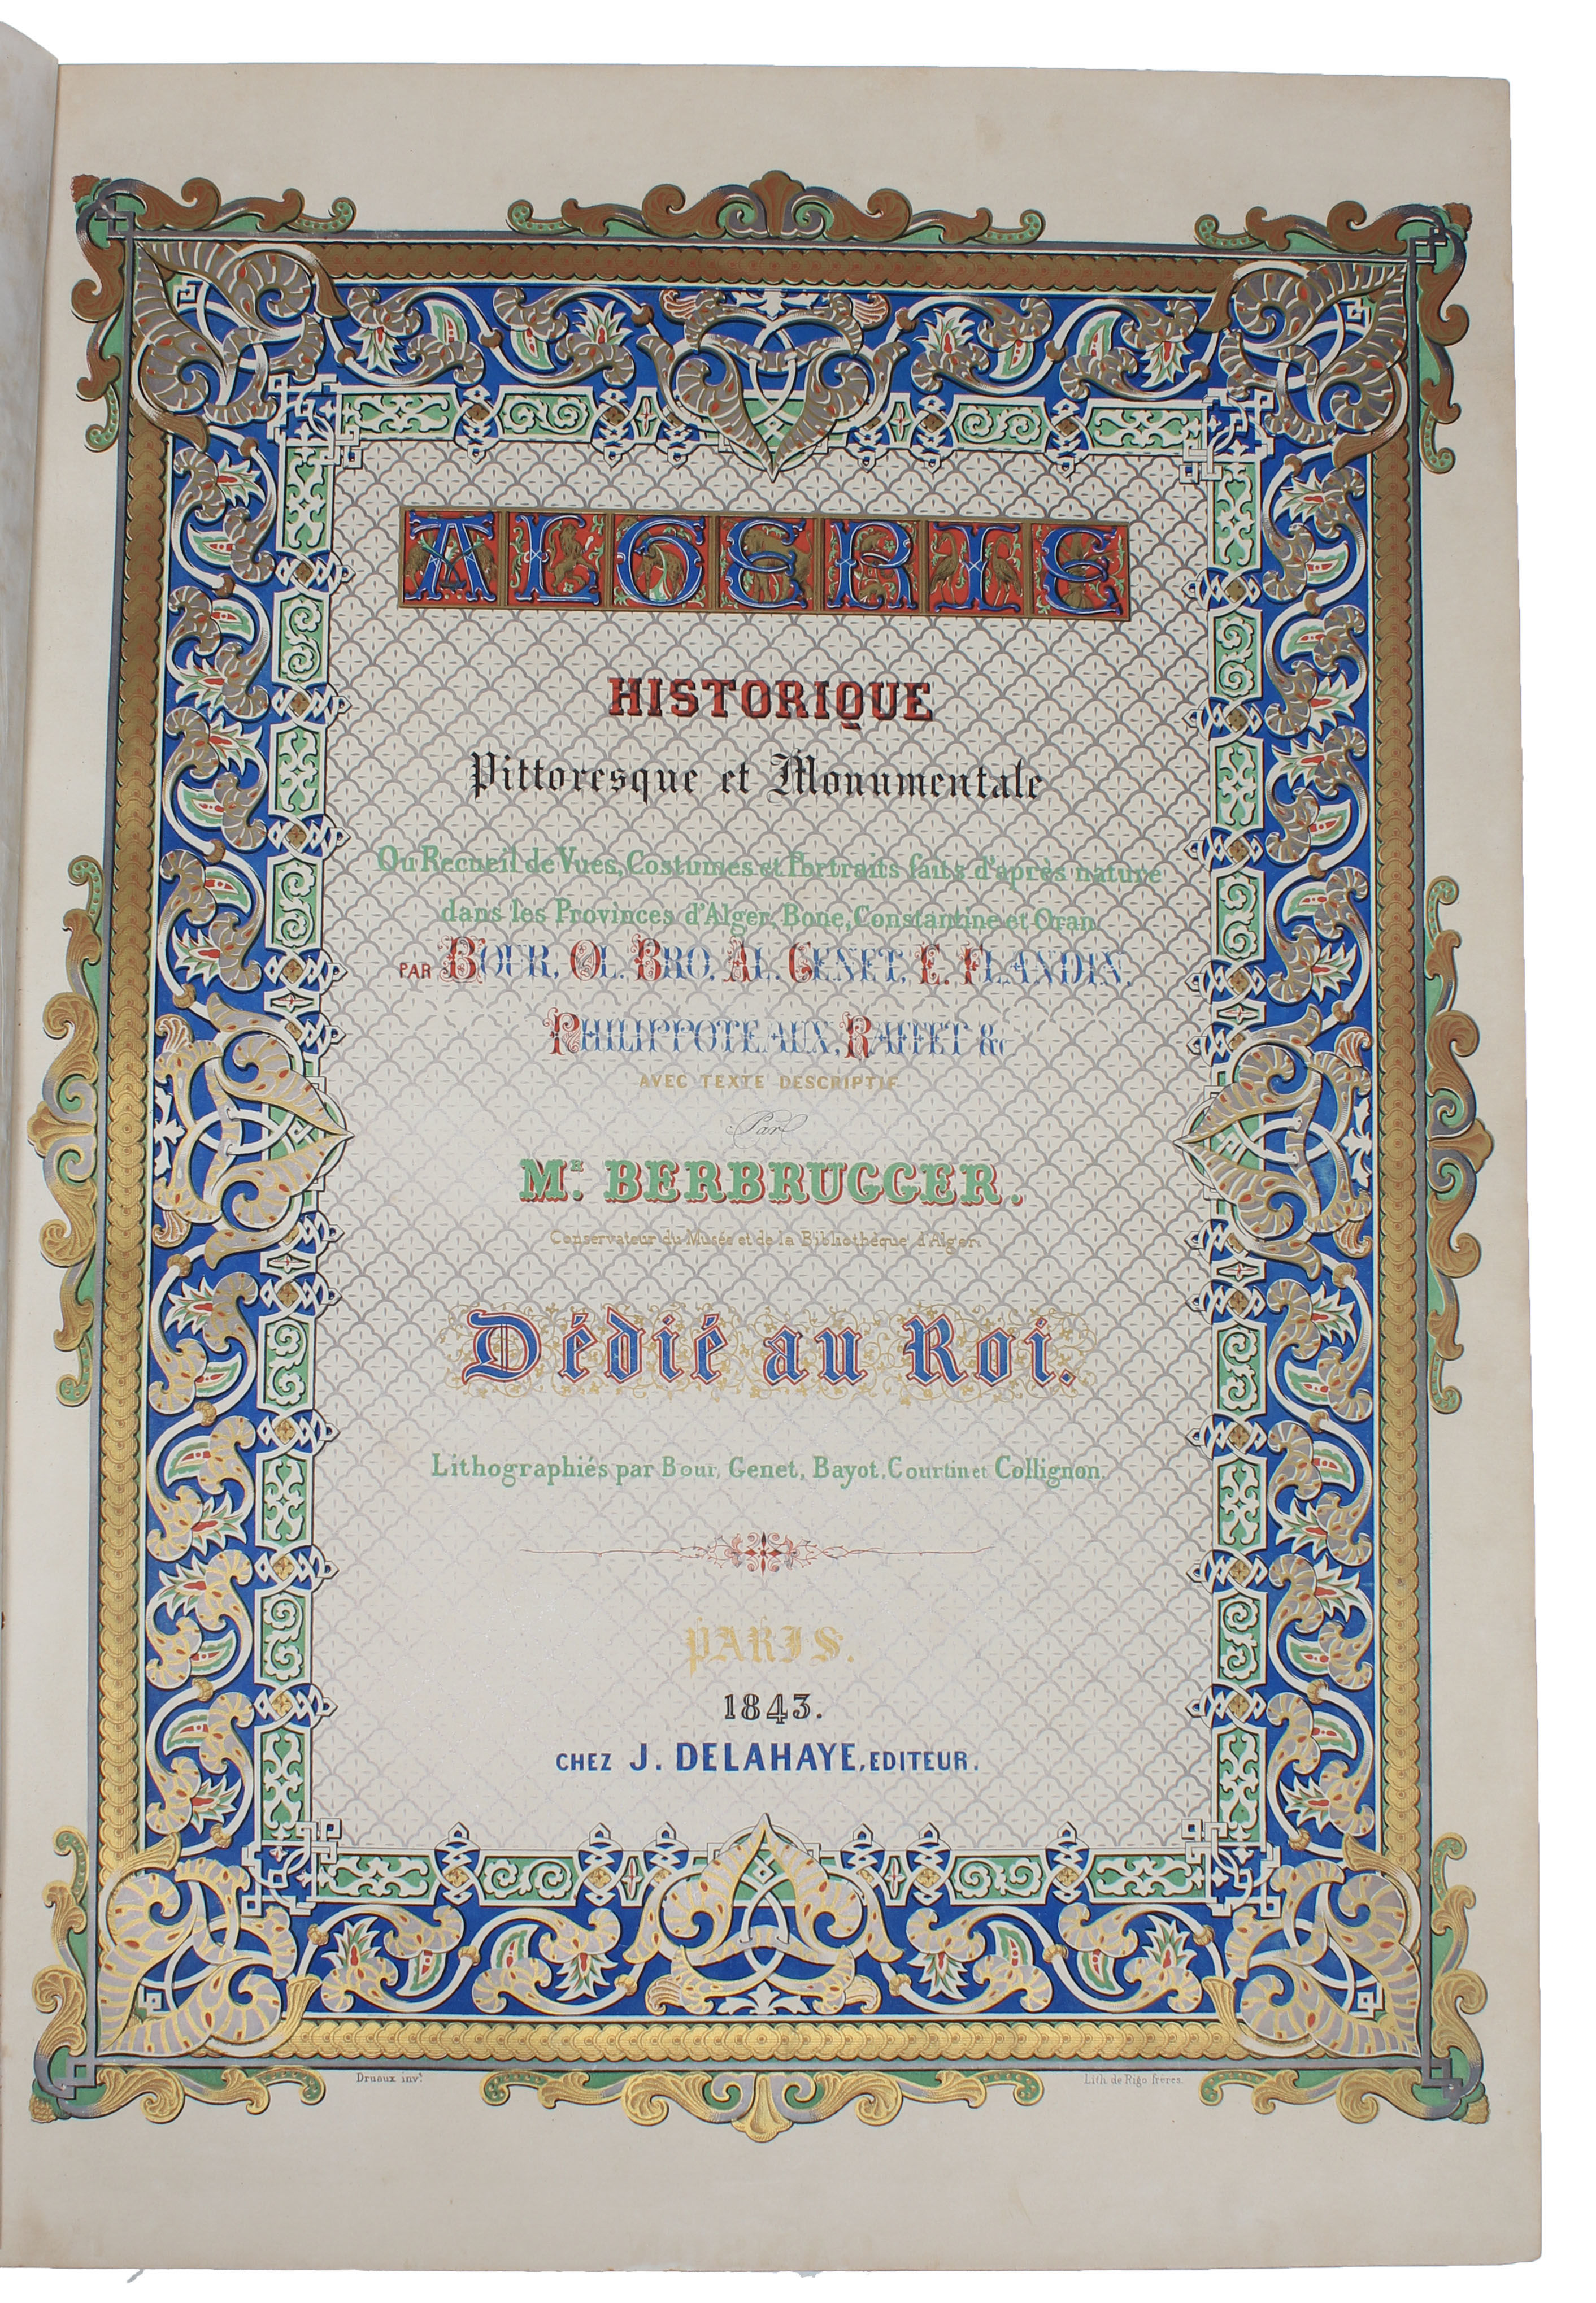 ALGERIE
HISTORIQUE
Pittoresque et Monumentale
Ou Recueil de Vues, Costumes et Portraits faits d'après nature
dans les Provinces d'Alger, Bone, Constantine et Oran
PAR BOUR, OL. BRO, AL. GENET, E. FLANDIN,
PHILIPPOTEAUX, RAFFET &c
AVEC TEXTE DESCRIPTIF
Par
MR. BERBRUGGER.
Conservateur du Musée et de la Bibliothèque d'Alger.
Dédié au Roi.
Lithographiés par Bour, Genet, Bayot, Courtin et Collignon.
PARIS.
1843.
CHEZ J. DELAHAYE, EDITEUR.
Druaux invt
Lith. de Rigo frères.